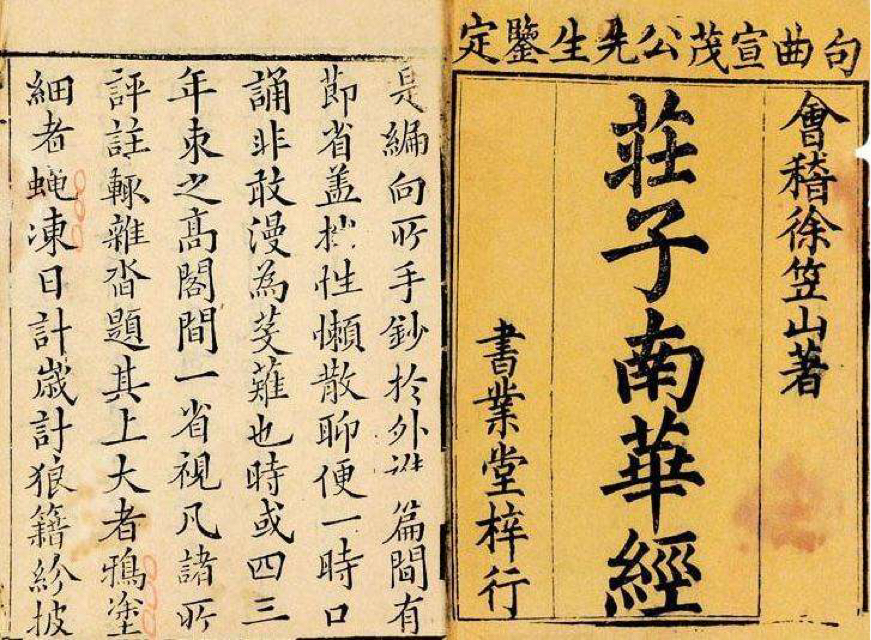 句曲宣茂公先生鑒定
會稽徐笠山著
莊子南華經
書業堂梓行
是編向所手鈔於外篇間有
節省葢性懶散聊便一時口
誦非敢漫為芟薙也時或四三
年束之高閣間一省視凡諸所
評註輒雜沓題其上大者鴉塗
細者蝇凍日計歲計狼籍紛披